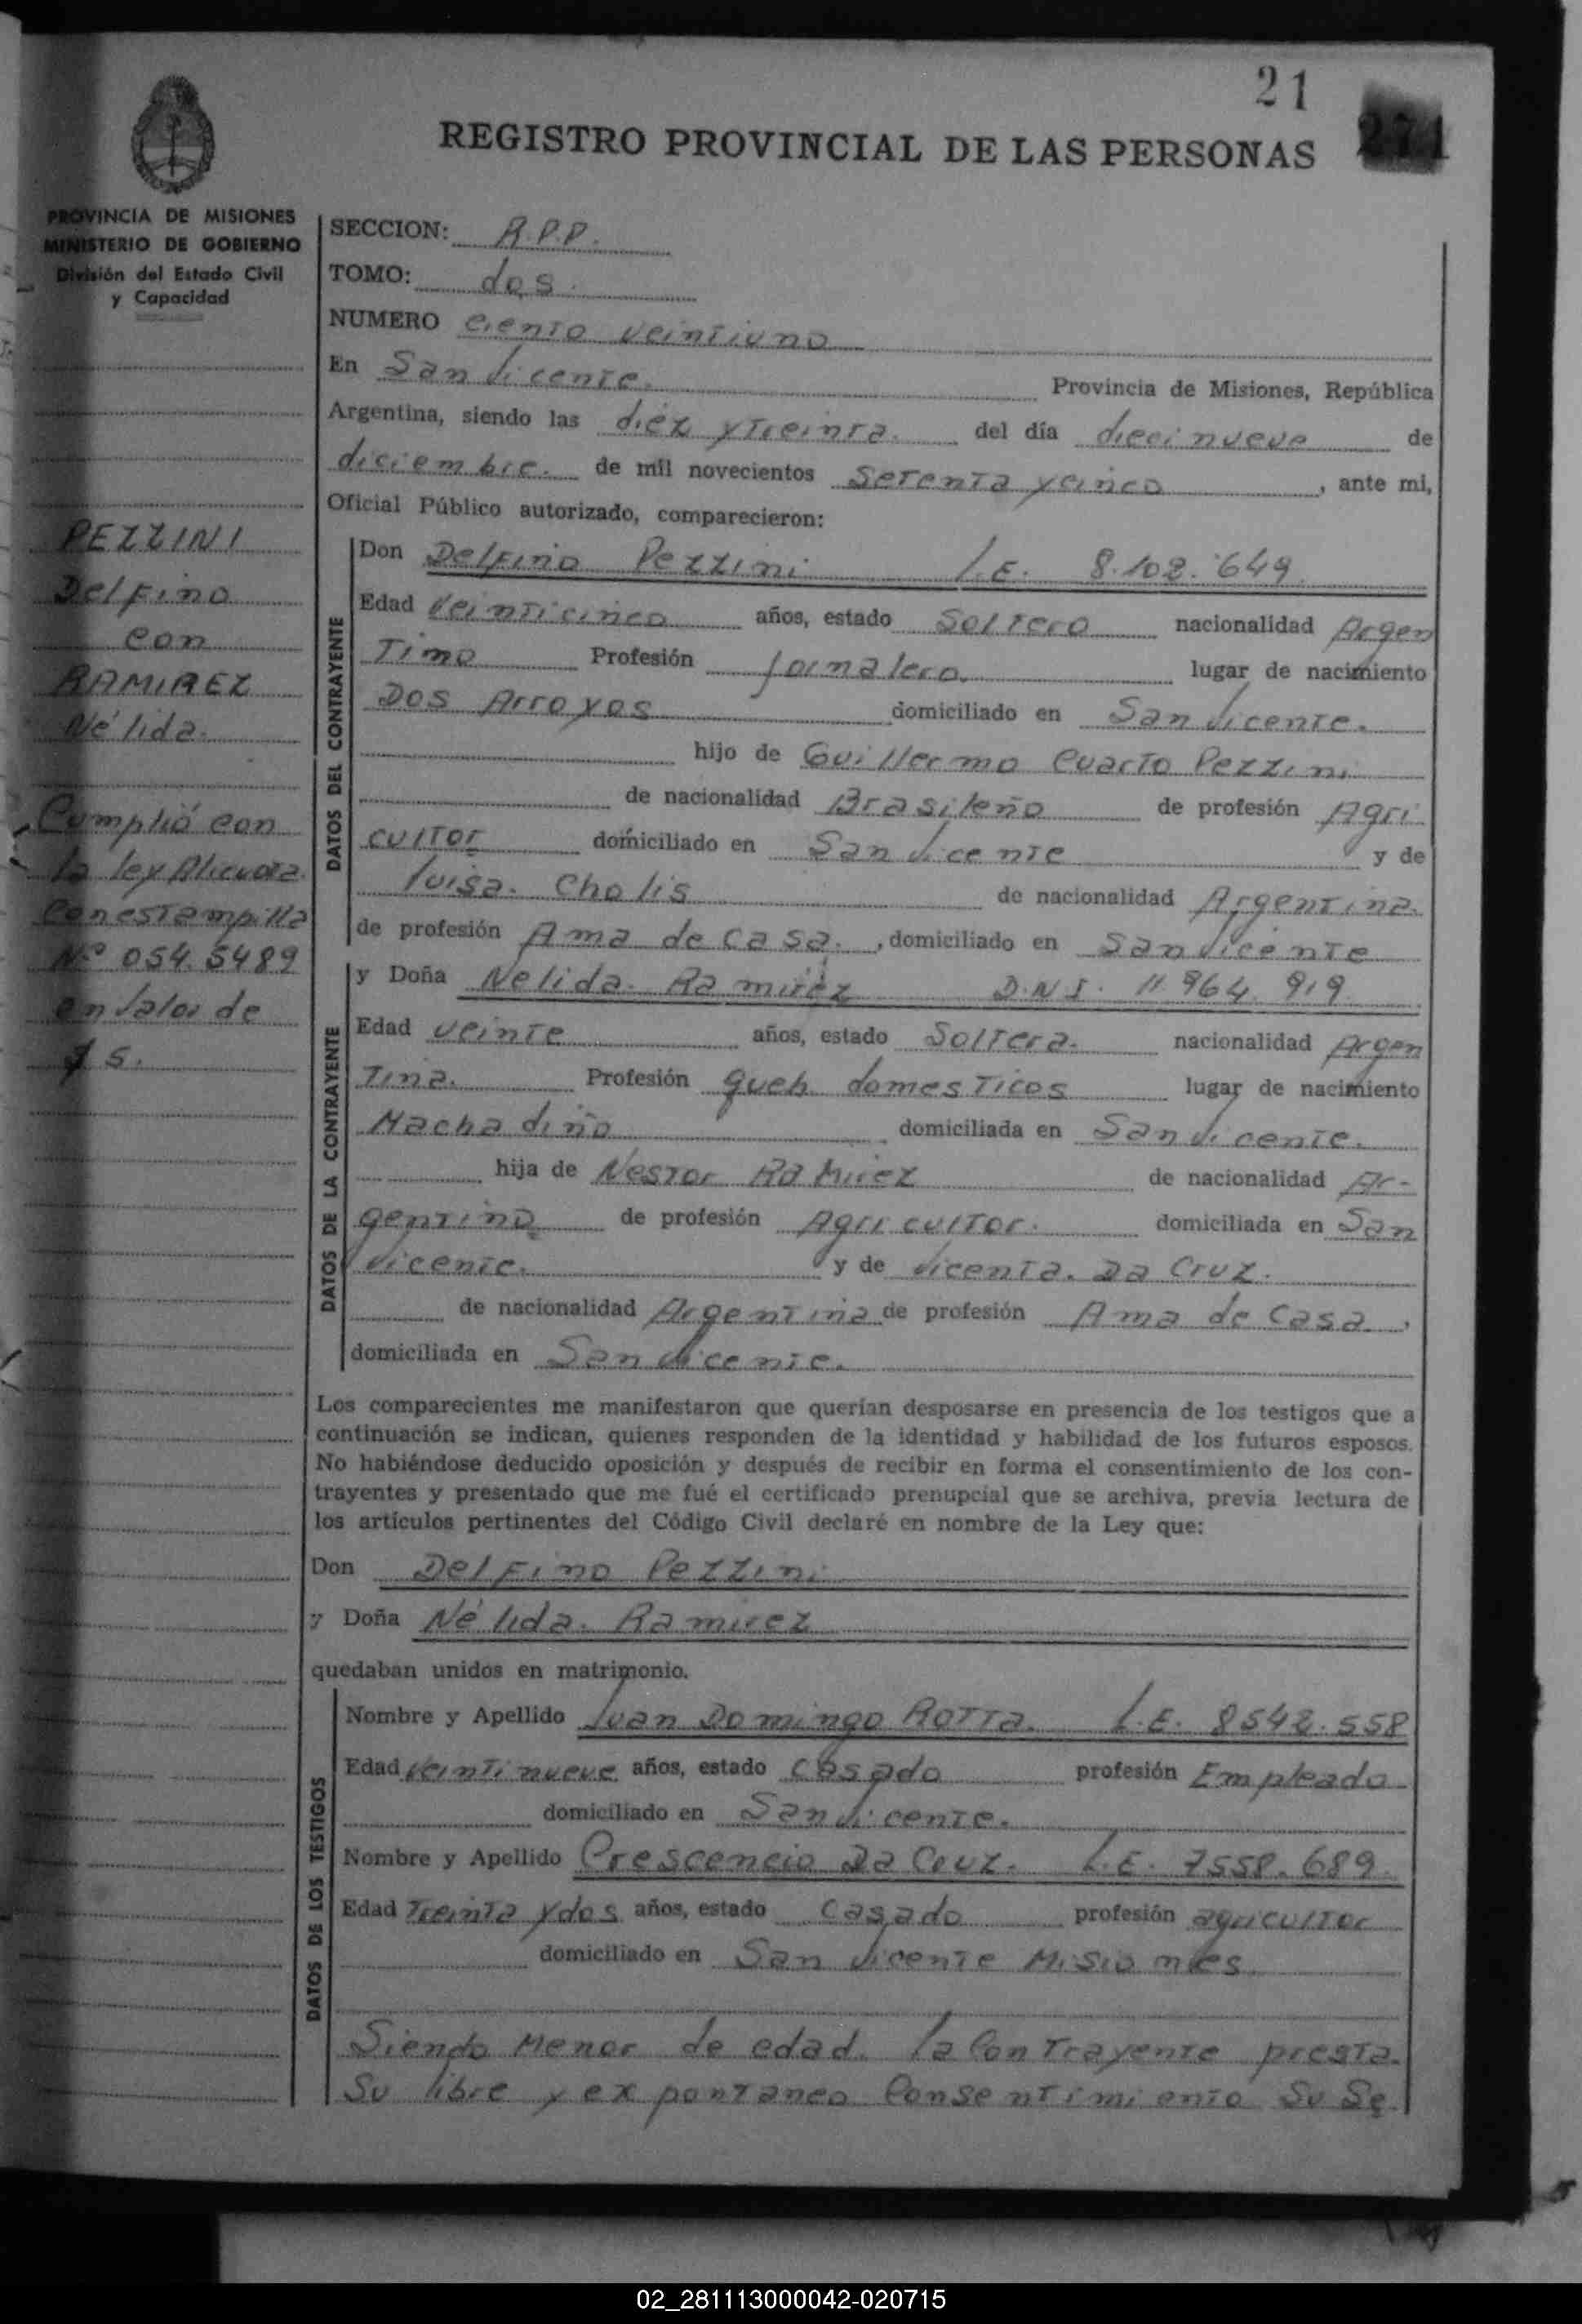 21
271
REGISTRO PROVINCIAL DE LAS PERSONAS
PROVINCIA DE MISIONES
MINISTERIO DE GOBIERNO
División del Estado Civil
y Capacidad
PEZZINI
Delfino
con
RAMIREZ
Nélida.
Cumplió con
la ley
con estampilla
Nº 054.5489
en valor de
$ 5.
SECCION: R.P.P.
TOMO: dos.
NUMERO ciento veintiuno
En San Vicente. Provincia de Misiones, República
Argentina, siendo las diéz y treinta. del día diecinueve de
diciembre. de mil novecientos setenta y cinco, ante mi,
Oficial Público autorizado, comparecieron:
DATOS DEL CONTRAYENTE
Don Delfino Pezzini L.E. 8.102.649
Edad veinticinco años, estado soltero nacionalidad Argen
tino Profesión jornalero. lugar de nacimiento
Dos Arroyos domiciliado en San Vicente.
hijo de Guillermo Cuarto Pezzini
de nacionalidad Brasileño de profesión Agri
cultor domiciliado en San Vicente y de
Luisa. Cholis de nacionalidad Argentina.
de profesión Ama de casa., domiciliado en San Vicente
DATOS DE LA CONTRAYENTE
y Doña Nelida. Ramiréz D.N.I. 11.964.919
Edad veinte años, estado Soltera. nacionalidad Argen
tina. Profesión queh. domesticos lugar de nacimiento
Machadiño domiciliada en San Vicente.
hija de Nestor Ramirez de nacionalidad Ar-
gentino de profesión Agricultor. domiciliada en San
Vicente. y de Vicenta. Da Cruz.
de nacionalidad Argentina de profesión Ama de casa.,
domiciliada en San Vicente.
Los comparecientes me manifestaron que querían desposarse en presencia de los testigos que a
continuación se indican, quienes responden de la identidad y habilidad de los futuros esposos.
No habiéndose deducido oposición y después de recibir en forma el consentimiento de los con-
trayentes y presentado que me fué el certificado prenupcial que se archiva, previa lectura de
los artículos pertinentes del Código Civil declaré en nombre de la Ley que:
Don Delfino Pezzini
y Doña Nélida. Ramirez
quedaban unidos en matrimonio.
DATOS DE LOS TESTIGOS
Nombre y Apellido Juan Domingo Rotta. L.E. 8542.558
Edad veintinueve años, estado casado profesión Empleado
domiciliado en San Vicente.
Nombre y Apellido Crescencio Da Cruz. L.E. 7558.689
Edad treinta y dos años, estado casado profesión agricultor
domiciliado en San Vicente Misiones
Siendo menor de edad. la Contrayente presta.
Su libre y expontaneo Consentimiento Su Se
02_281113000042-020715